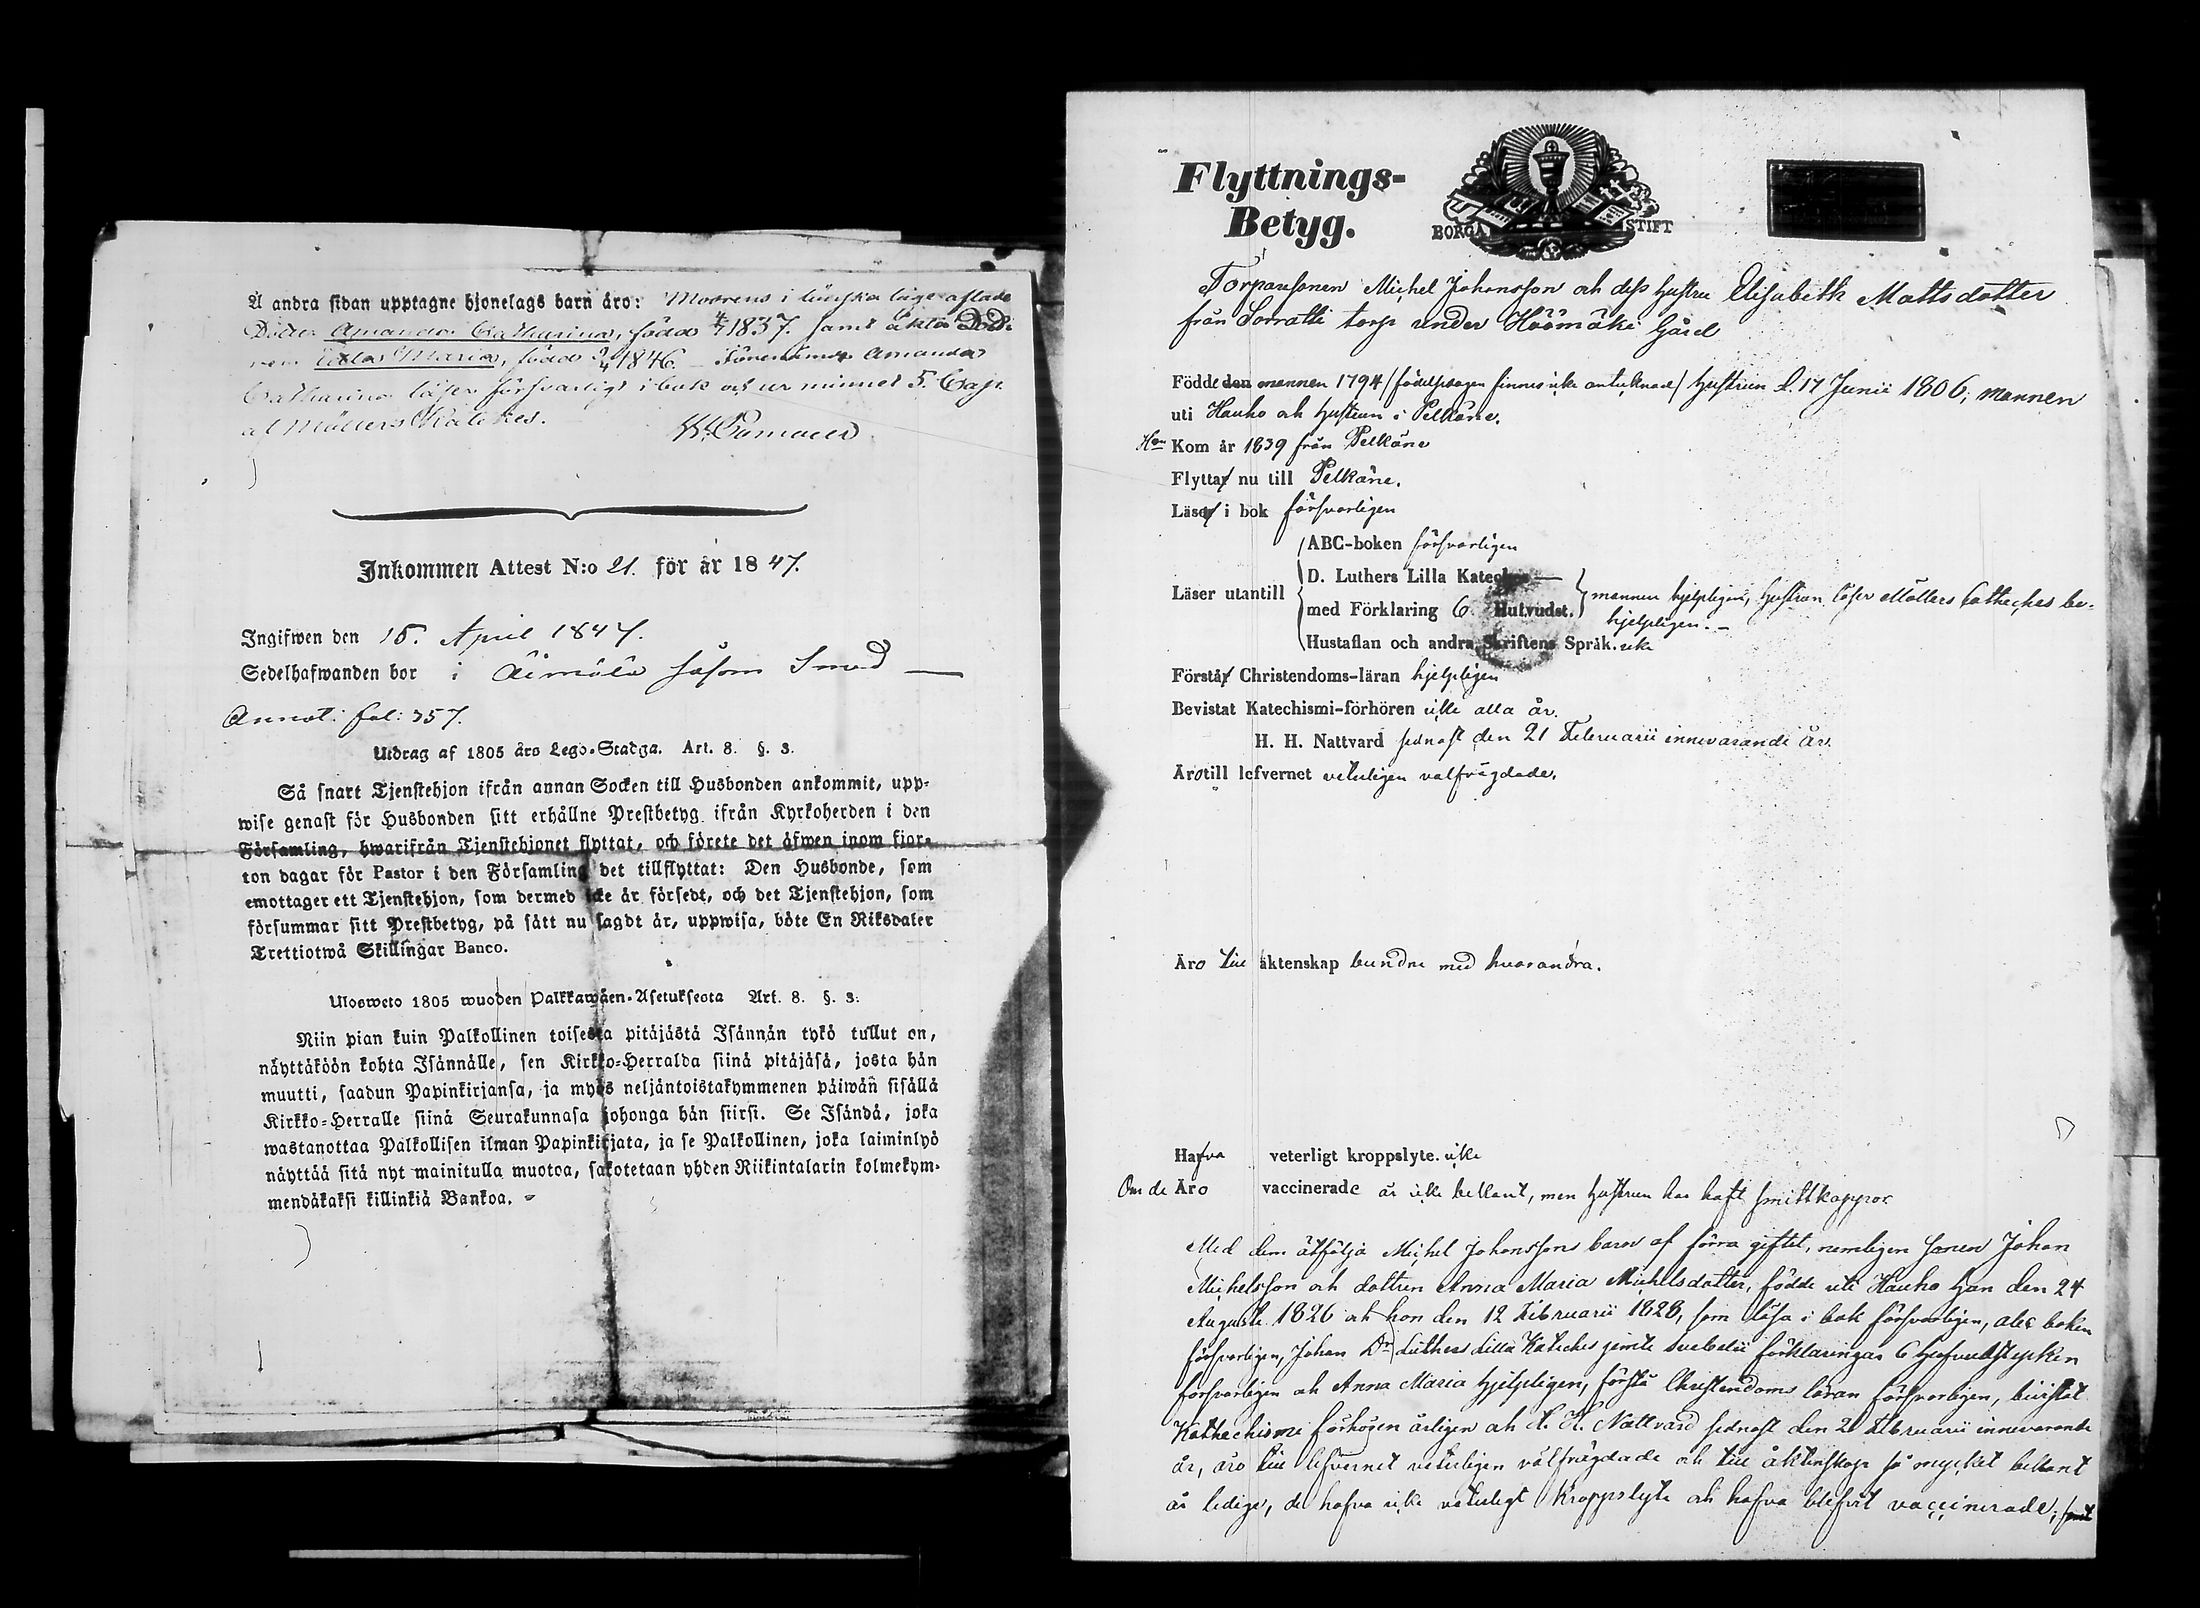 Å andra sidan upptagne hjonelags barn äro: Modrens i lönska läge aflade
Dotter Amanda Catharina, född 4/7 1837. samt äkta Dott-
ren Maria, född 1846. Amanda
Catharina läser försvarligt i bok och ur minnet 5. Cap.
af Möllers Katekes.
Inkommen Attest N:o 21. för år 1847.
Ingifwen den 15. April 1847.
Sedelhafwanden bor i Äimälä såsom Smed —
Annot: fol: 357.
Utdrag af 1805 års Lego-Stadga. Art. 8. §. 3.
Så snart Tjenstehjon ifrån annan Socken till Husbonden ankommit, upp-
wise genast för Husbonden sitt erhållne Prestbetyg ifrån Kyrkoherden i den
Församling, hwarifrån Tjenstehjonet flyttat, och förete det äfwen inom fjor-
ton dagar för Pastor i den Församling det tillflyttat: Den Husbonde, som
emottager ett Tjenstehjon, som dermed icke är försedt, och det Tjenstehjon, som
försummar sitt Prestbetyg, på sätt nu sagdt är, uppwisa, böte En Riksdaler
Trettiotwå Skillingar Banco.
Ulosweto 1805 wuoden Palkkawäen-Asetuksesta Art. 8. §. 3.
Niin pian kuin Palkollinen toisesta pitäjästä Isännän tykö tullut on,
näyttäköön kohta Isännälle, sen Kirkko-Herralda siinä pitäjäsä, josta hän
muutti, saadun Papinkirjansa, ja myös neljäntoistakymmenen päiwän sisällä
Kirkko-Herralle siinä Seurakunnasa johonga hän siirsi. Se Isändä, joka
wastanottaa Palkollisen ilman Papinkirjata, ja se Palkollinen, joka laiminlyö
näyttää sitä nyt mainitulla muotoa, sakotetaan yhden Riikintalarin kolmekym-
mendäkaksi killinkiä Bankoa.
Flyttnings-
Betyg.
BORGÅ STIFT
Torparesonen Michel Johansson och dess hustru Elisabeth Mattsdotter
från Sorratti torp under Höömäki Gård
Födde den mannen 1794 /födelsedagen finnes icke antecknad/ hustrun d. 17 Junii 1806; mannen
uti Hauho och hustrun i Pelkäne.
Hon Kom år 1839 från Pelkäne
Flyttar nu till Pelkäne.
Läser i bok försvarligen
ABC-boken försvarligen
D. Luthers Lilla Kateches —
Läser utantill med Förklaring 6 Hufvudst. mannen hjelpligen, hustrun läser Möllers Catheches be-
hjelpligen. —
Hustaflan och andra Skriftens Språk. icke
Förstår Christendoms-läran hjelpligen
Bevistat Katechismi-förhören icke alla år.
H. H. Nattvard sednast den 21 Februarii innevarande år.
Äro till lefvernet veterligen välfrägdade.
Äro till äktenskap bundne med hvarandra.
Hafva veterligt kroppslyte. icke
Om de Äro vaccinerade är icke bekant, men hustrun har haft smittkoppor.
Med dem åtfölja Michel Johanssons barn af förra giftet, nemligen sonen Johan
Michelsson och dottren Anna Maria Michelsdotter, födde uti Hauho han den 24
Augusti 1826 och hon den 12 Februarii 1828, som läsa i bok försvarligen, abc boken
försvarligen, Johan Dr Luthers Lilla Kateches jemte Svebelii förklaringar 6 hufvudstycken
försvarligen och Anna Maria hjelpligen, förstå Christendoms läran försvarligen, bevistat
Kathechismi förhören årligen och H. H. Nattvard sednast den 21 Februarii innevarande
år, äro till lefvernet veterligen välfrägdade och till äktenskap så mycket bekant
är ledige, de hafva icke veterligt kroppslyte och hafva blifvit vaccinerade; samt